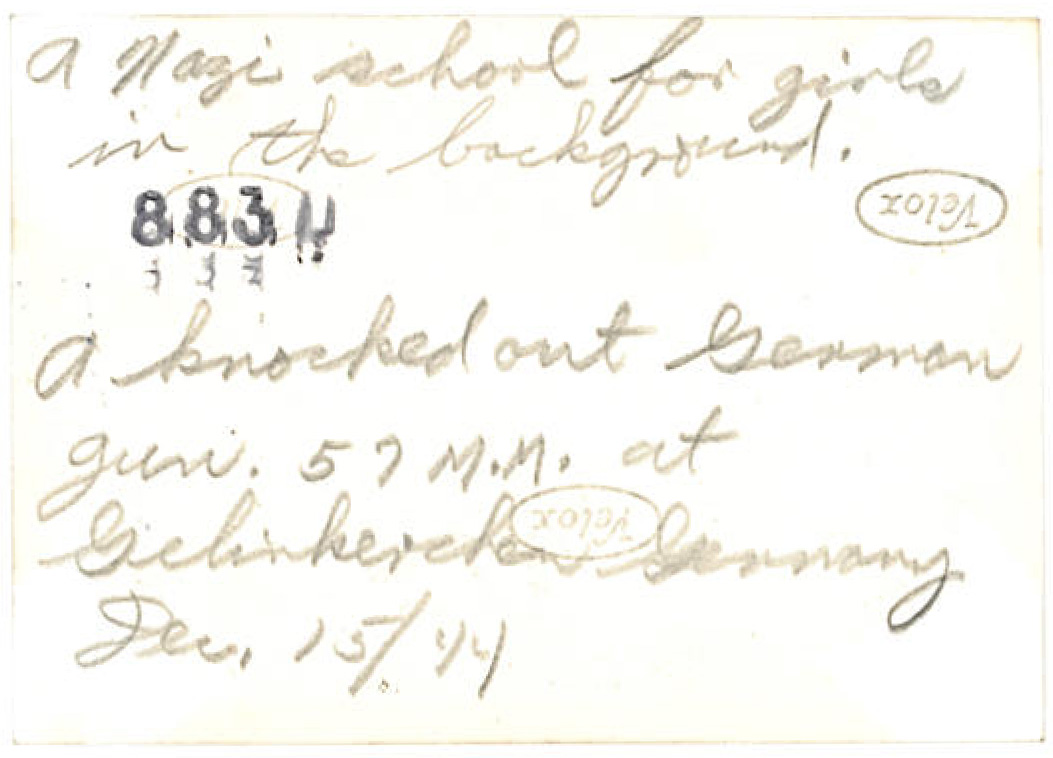 A Nazi school for girls
in the background.
883
Velox
A knocked out German
gun. 57 M.M. at
Velox
Gielinkerchen Germany
Dec. 15/44